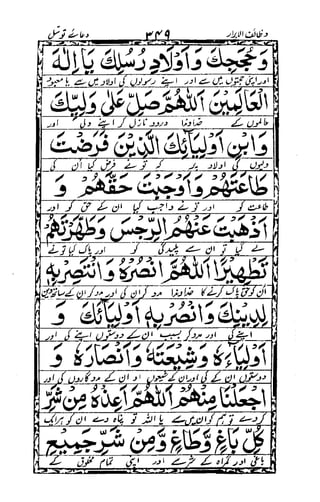 وظائف الابرار ۳۴۹ دعائے توسّل
وَحُجَجِكَ وَاَوْلَادِ رُسُلِكَ يَا اِلٰهَ
اور اپنی حجتوں میں سے اور اپنے رسولوں کی اولاد میں سے یا معبود
الْعَالَمِيْنَ اَللّٰهُمَّ صَلِّ عَلٰى وَلِيِّكَ
عالموں کے خداوندا درود نازل کر اپنے ولی اور
وَابْنِ اَوْلِيَآئِكَ الَّذِيْنَ فَرَضْتَ
ولیوں کی اولاد پر کہ تو نے فرض کیا ان کی
طَاعَتَهُمْ وَاَوْجَبْتَ حَقَّهُمْ وَ
طاعت کو اور تو نے واجب کیا ان کے حق کو اور
اَذْهَبْتَ عَنْهُمُ الرِّجْسَ وَطَهَّرْتَهُمْ
لے گیا تو ان سے پلیدگی کو اور پاک کیا تو نے
تَطْهِيْرًا اَللّٰهُمَّ انْصُرْهُ وَانْتَصِرْ بِهٖ
ان کو حق پاک کرنے کا خداوندا مدد کر ان کی اور مدد کر ان کے ساتھ
لِدِيْنِكَ وَانْصُرْ بِهٖ اَوْلِيَآئَكَ وَ
اپنے کی اور مدد کر بسبب ان کے دوستوں اپنے کی اور
اَوْلِيَآءَهٗ وَشِيْعَتَهٗ وَاَنْصَارَهٗ وَ
دوستوں ان کے کی اور ان کے شیعوں اور ان کے مددگاروں کی اور
اجْعَلْنَا مِنْهُمْ اَللّٰهُمَّ اَعِذْهُ مِنْ شَرِّ
کر دے تو ہم کو ان میں سے یا اللہ تو پناہ دے ان کو ہر ایک
كُلِّ بَاغٍ وَّطَاغٍ وَّمِنْ شَرِّ جَمِيْعِ
باغی اور گمراہ کے شر سے اور اپنی تمام مخلوق کے